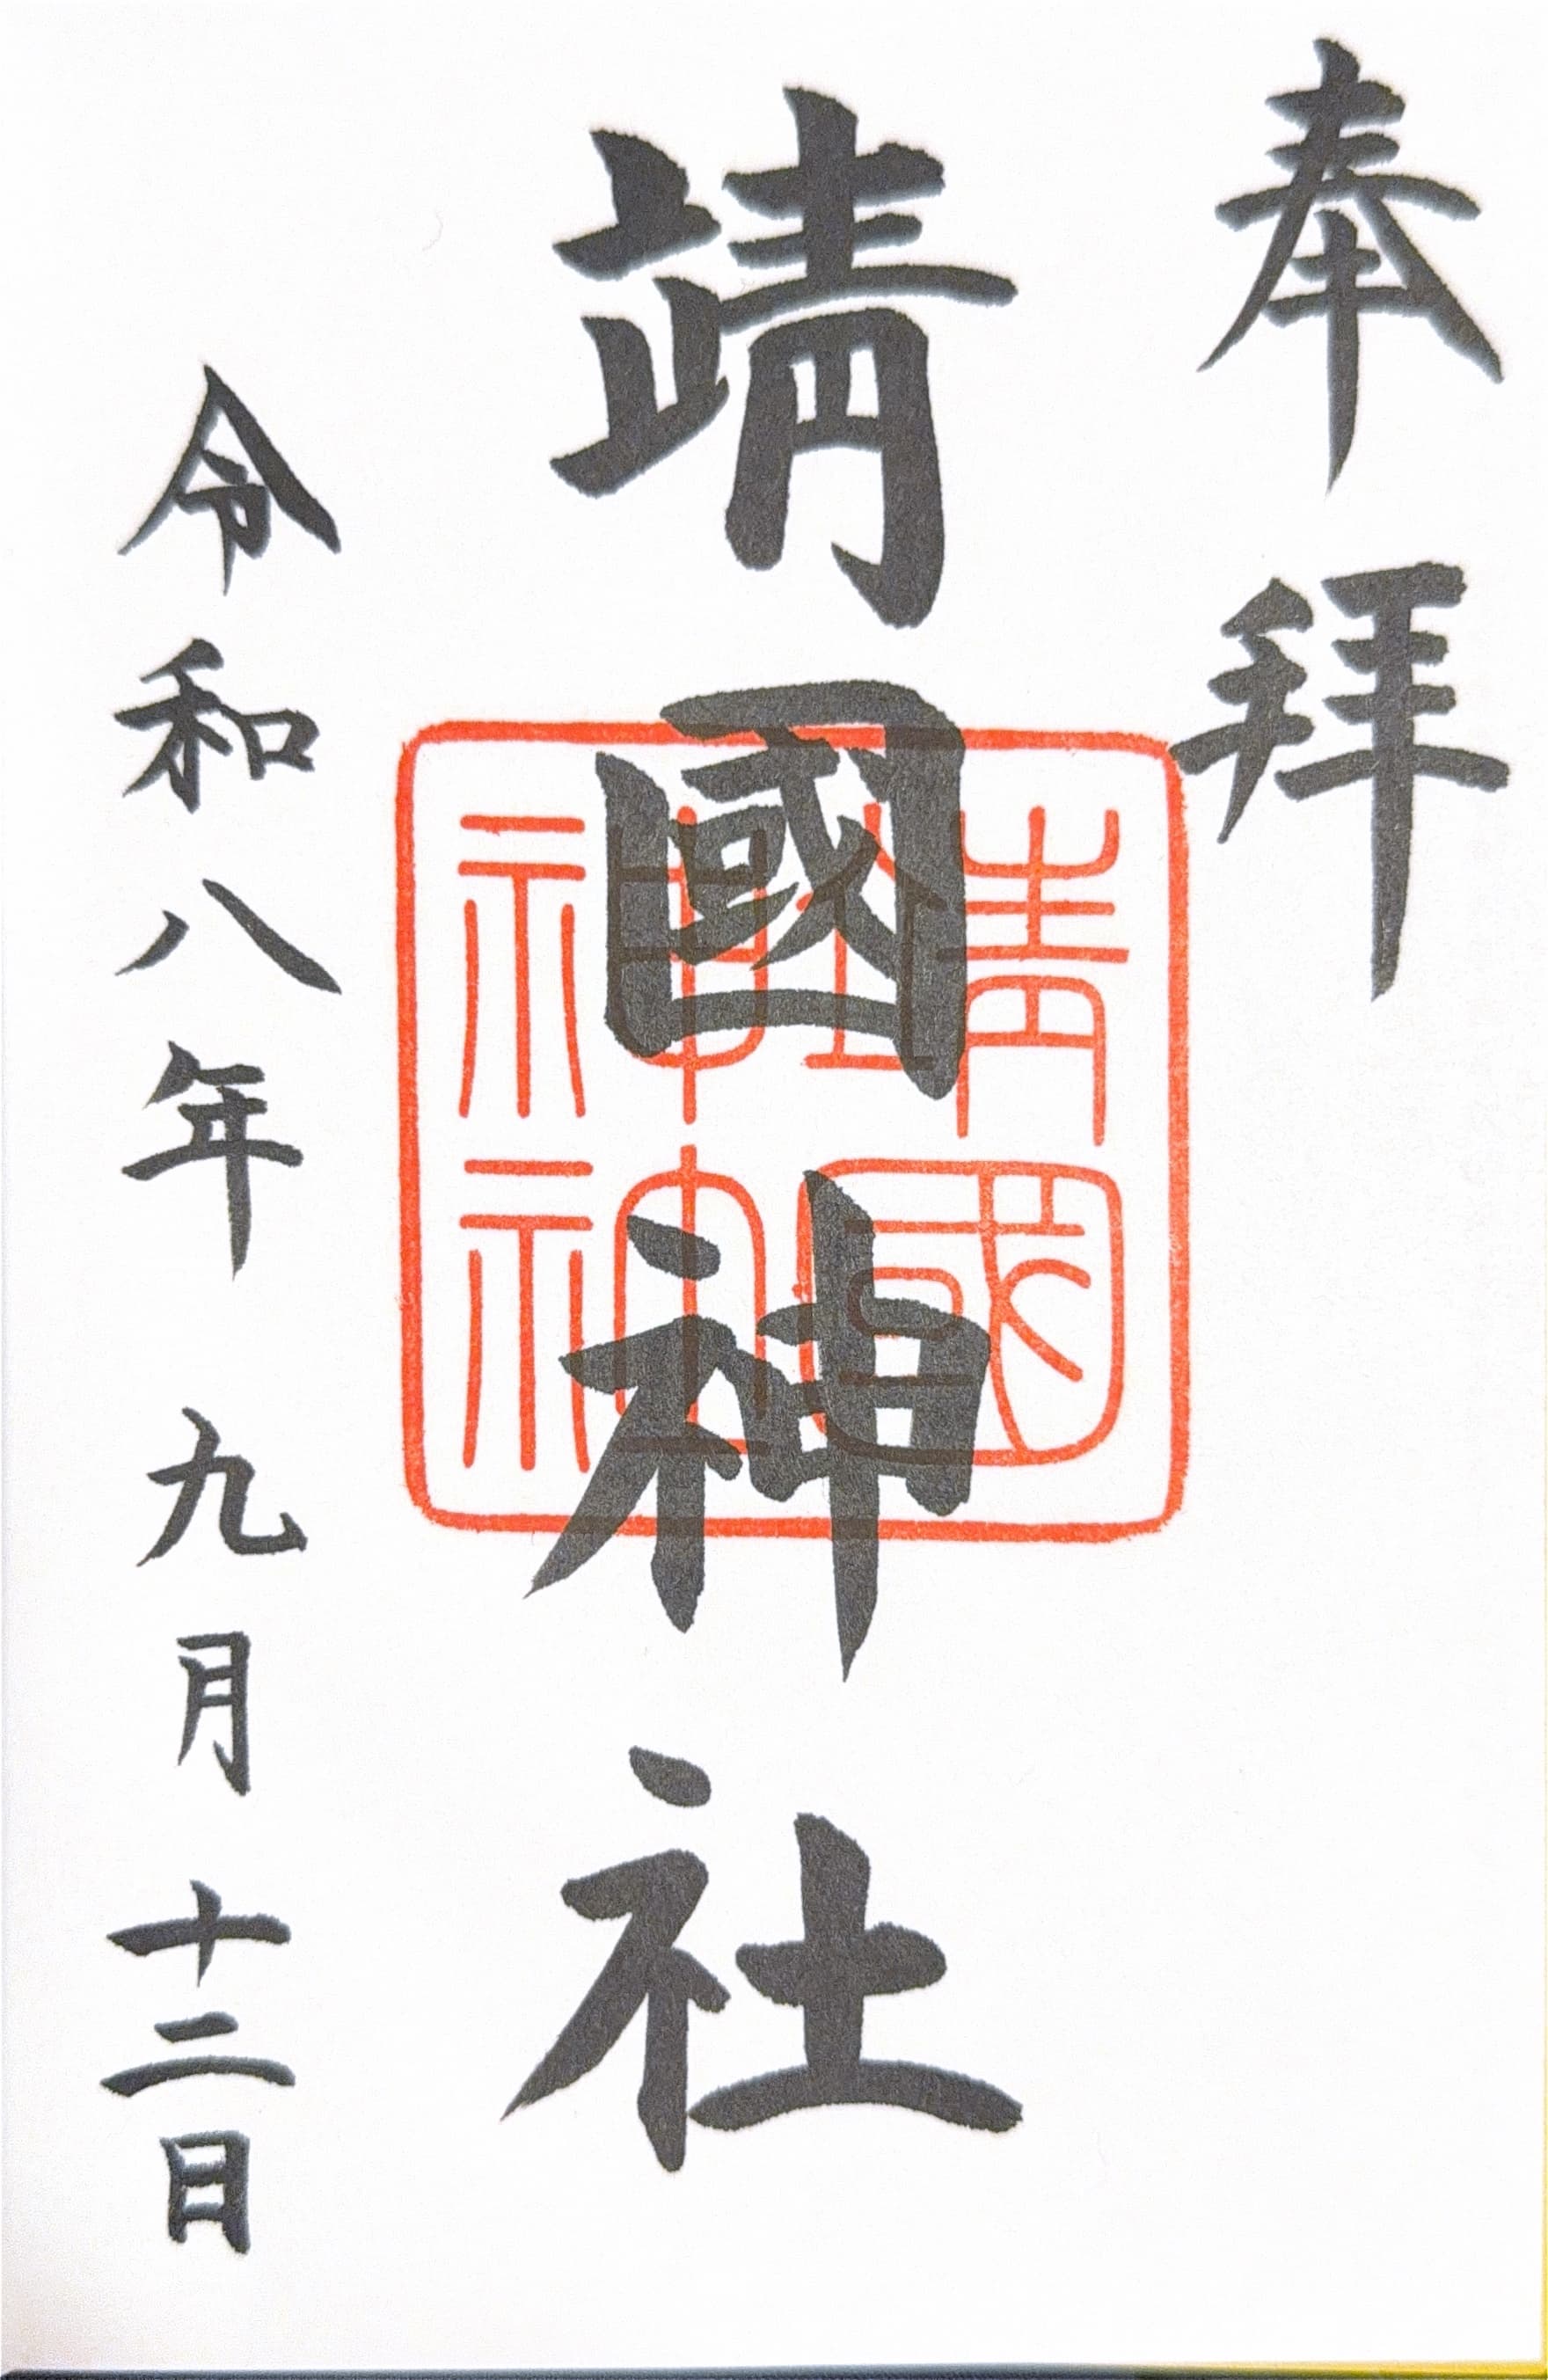 奉拜
靖國神社
靖國神社
令和八年 九月 十二日